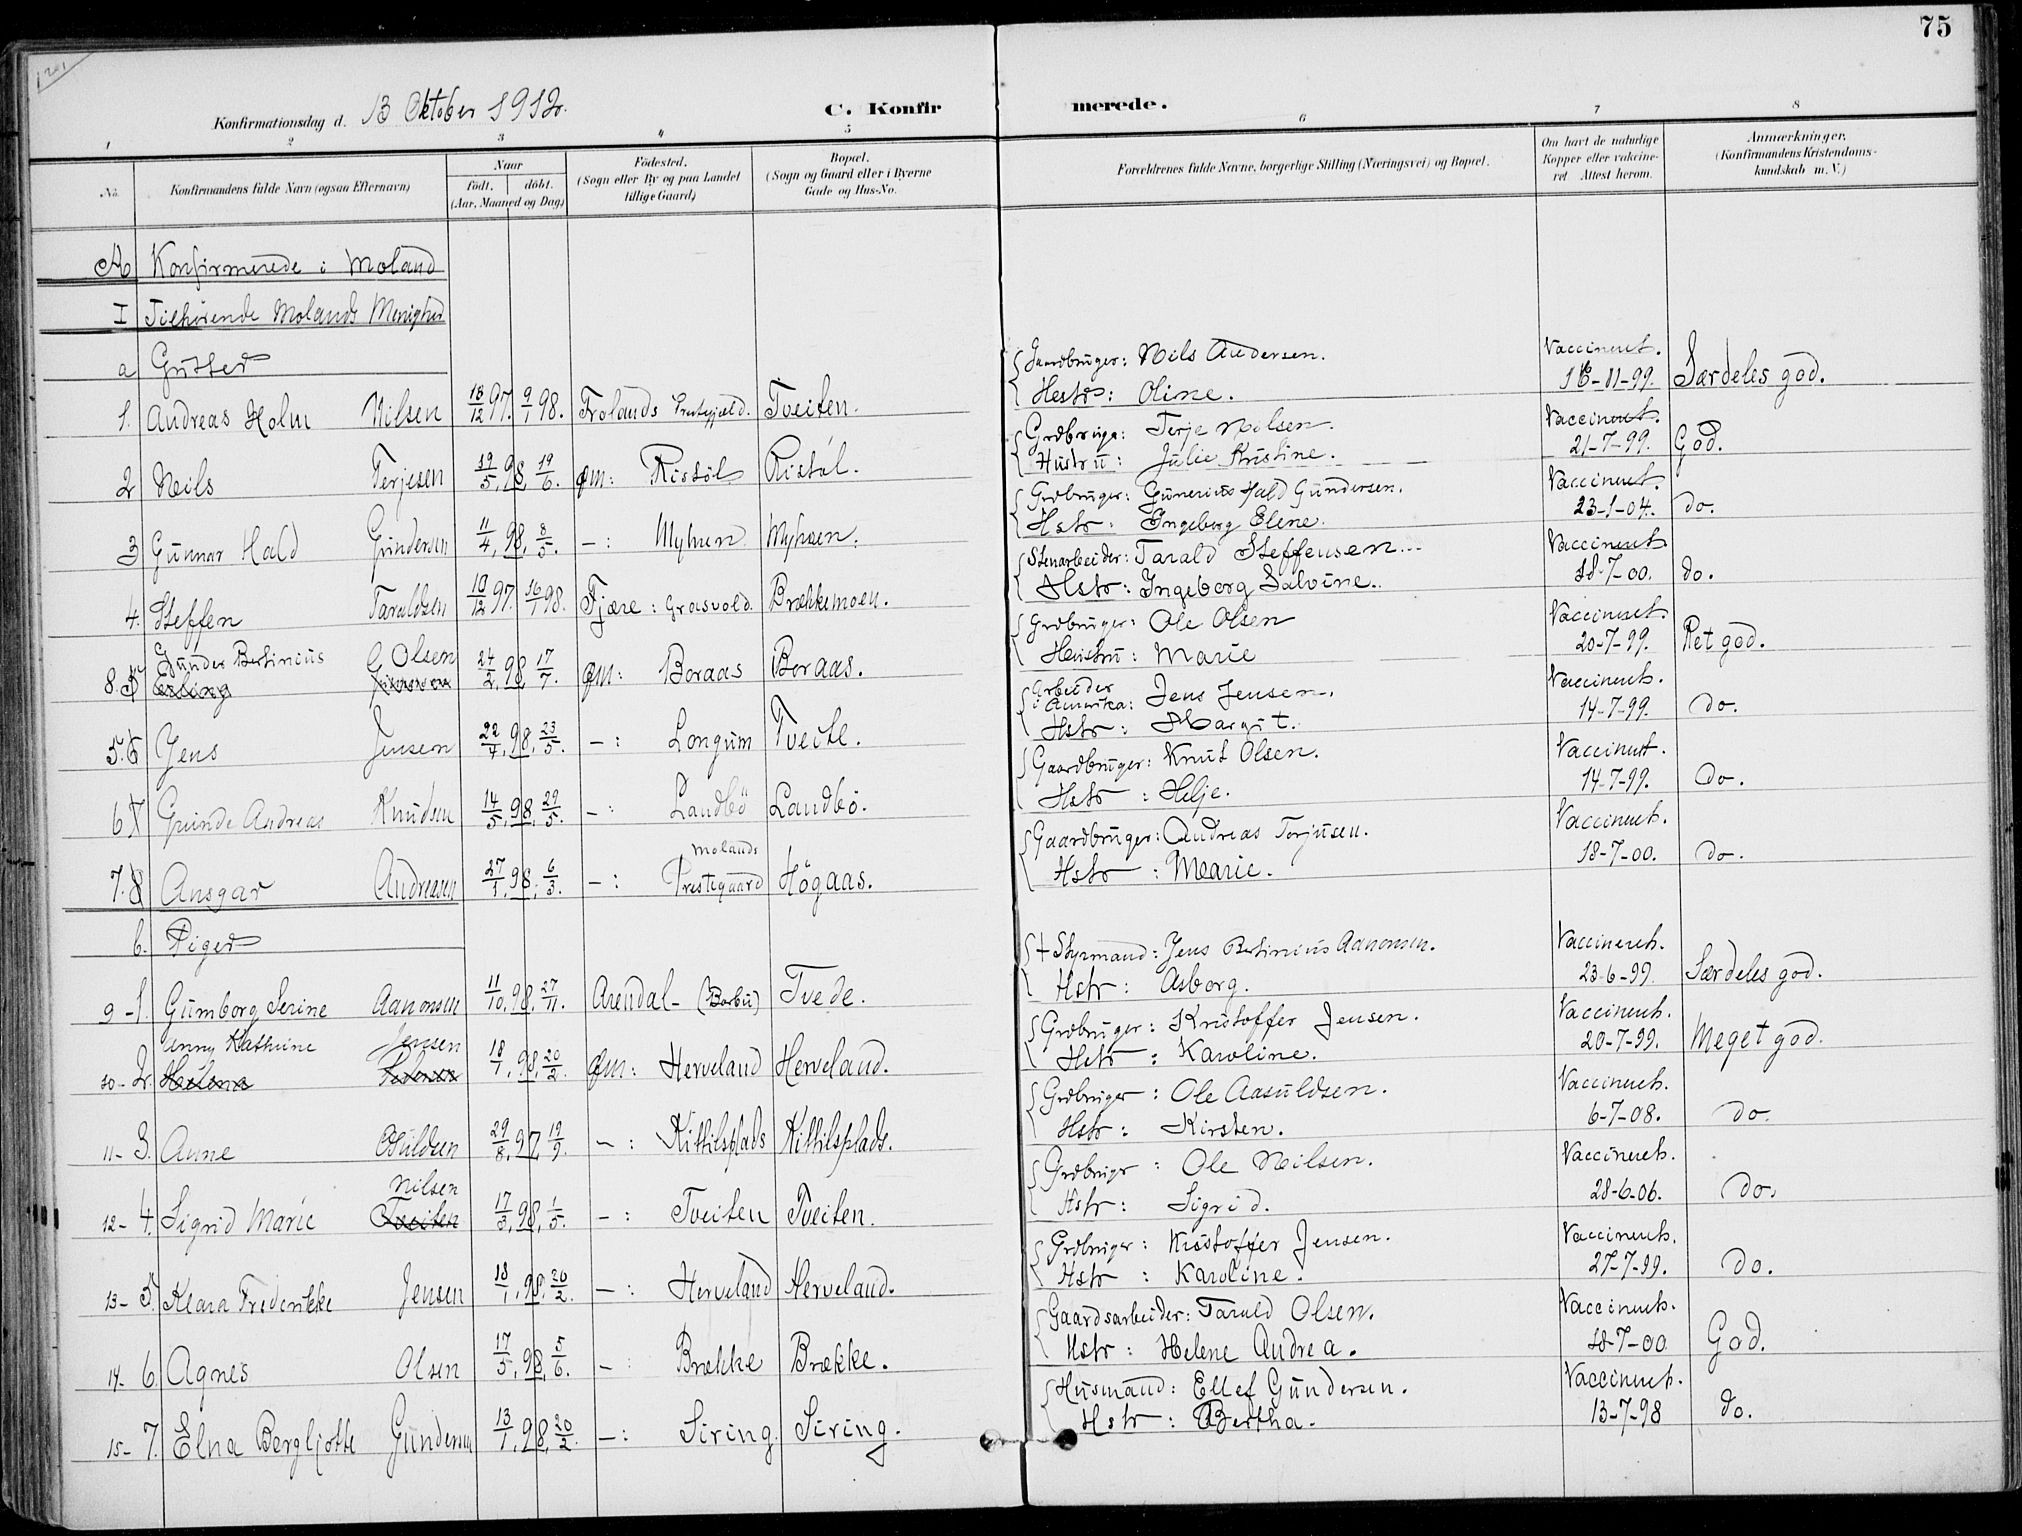 75
Konfirmationsdag d. 13 Oktober 1912.
C. Konfirmerede.
1 2 3 4 5 6 7 8
No.
Konfirmandens fulde Navn (ogsaa Efternavn)
Naar
födt. döbt.
(Aar, Maaned og Dag)
Födested.
(Sogn eller By og paa Landet
tillige Gaard)
Bopæl.
(Sogn og Gaard eller i Byerne
Gade og Hus-No.
Forældrenes fulde Navne, borgerlige Stilling (Næringsvei) og Bopæl.
Om havt de naturlige
Kopper eller vakcine-
ret Attest herom.
Anmærkninger.
(Konfirmandens Kristendoms-
kundskab m. V.)
A Konfirmerede i Moland
I Tilhørende Molands Menighed
a Gutter
Gaardbruger: Nils Andersen. Vaccineret.
Hustr: Oline. 16-11-99. Særdeles god.
1. Andreas Holm Nilsen 18/12 97. 9/1 98. Frolands Prestegjæld. Tveiten.
Grdbruger: Terje Nilsen. Vaccineret.
Hustru: Julie Kristine. 21-7-99. God.
2 Nils Terjesen 19/5 98, 19/6. Øm: Ristöl Ristöl.
Grdbruger: Gunerius Hald Gundersen. Vaccineret.
Hstr: Ingeborg Elene. 23-1-04. do.
3 Gunnar Hald Gundersen 11/4, 98, 8/5. -: Myhren Myhren.
Stenarbeider: Tarald Steffensen. Vaccineret
Hstr: Ingeborg Salvine. 18-7-00. do.
4. Steffen Taraldsen 10/12 97. 16/1 98. Fjære: Grosvold. Brækkemoen.
Grdbruger: Ole Olsen Vaccineret.
Hustru: Marie 20-7-99. Ret god.
Gunder Bertinius Olsen
8. 5 Erling 24/2, 98, 17/7. Øm: Boraas Boraas.
Arbeider
i Amerika: Jens Jensen. Vaccineret.
Hstr: Margit. 14-7-99. do.
5. 6 Jens Jensen 22/4, 98, 23/5. -: Longum Tveite.
Gaardbruger: Knut Olsen. Vaccineret.
Hstr: Helje. 14-7-99. do.
6 7 Gunde Andreas Knudsen 14/5, 98, 29/5. -: Landbö Landbö.
Gaardbruger: Andreas Terjusen. Vaccineret.
Hstr: Marie. 18-7-00. do.
Molands
7. 8 Ansgar Andreasen 27/1, 98, 6/3. -: Prestegaard Högaas.
b. Piger
+ Styrmand: Jens Bertinius Aanonsen. Vaccineret.
Hstr: Asborg. 23-6-99. Særdeles god.
9 - 1. Gumborg Serine Aanonsen 11/10, 98, 27/11. Arendal - (Barbu) Tvede.
Grdbruger: Kristoffer Jensen. Vaccineret.
Hstr: Karoline. 20-7-99. Meget god.
Anny Kathrine Jensen
10 - 2. Helena 18/1, 98, 20/2. Øm: Herveland Herveland.
Grdbruger: Ole Aasuldsen. Vaccineret.
Hstr: Kirsten. 6-7-08. do.
11 - 3. Anne Osuldsen 29/8, 97, 19/9. -: Kittilsplads Kittilsplads.
Grdbruger: Ole Nilsen. Vaccineret.
Hstr: Sigrid. 28-6-06. do.
Nilsen
12 - 4. Sigrid Marie Tveiten 17/3, 98, 1/5. -: Tveiten Tveiten.
Grdbruger: Kristoffer Jensen. Vaccineret.
Hstr: Karoline. 27-7-99. do.
13 - 5. Klara Frederikke Jensen 18/1, 98, 20/2. -: Herveland Herveland.
Gaardsarbeider: Tarald Olsen. Vaccineret.
Hstr: Helene Andrea. 18-7-00 God.
14 - 6. Agnes Olsen 17/5, 98, 5/6. -: Brække Brække.
Husmand: Ellef Gundersen. Vaccineret.
Hstr: Bertha. 13-7-98 do.
15 - 7. Elna Bergljotte Gundersen 13/1, 98, 20/2. -: Siring. Siring.